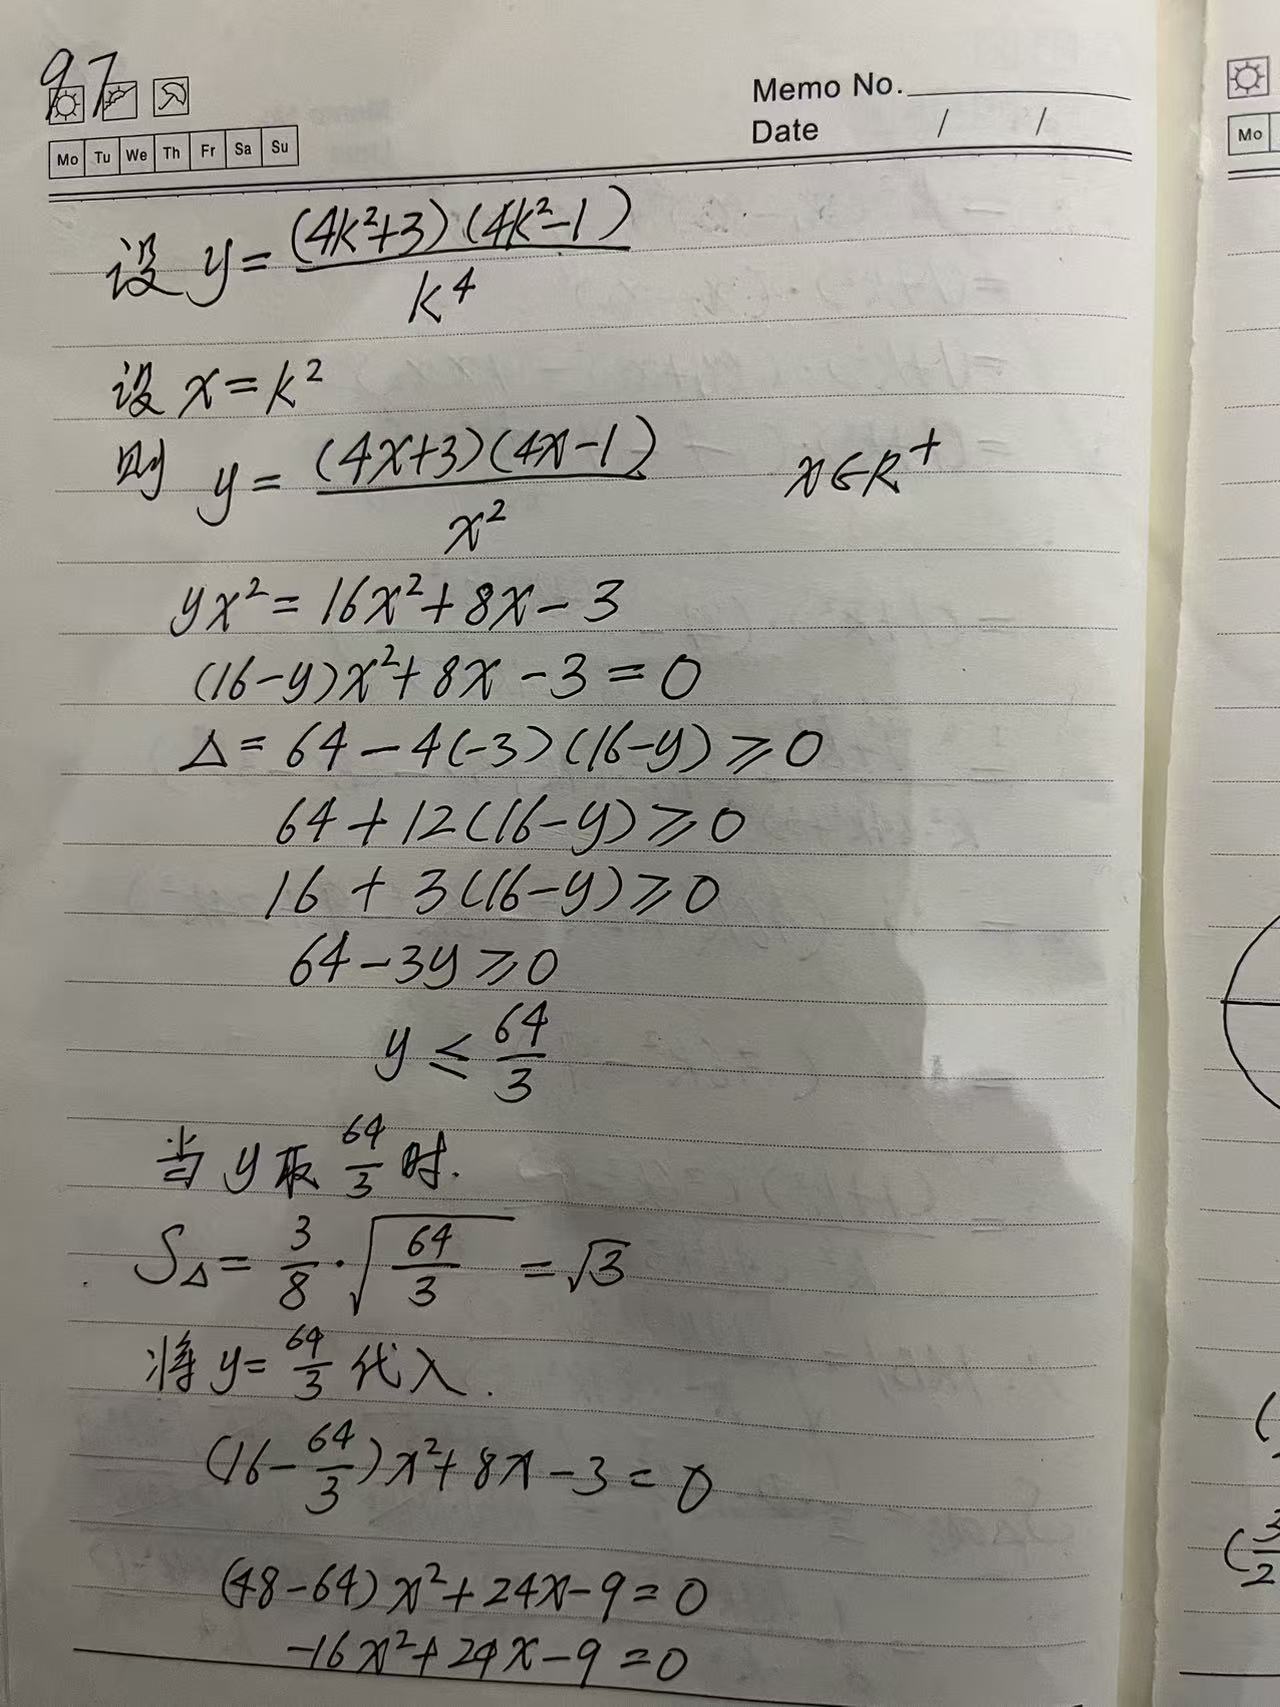 97
Memo No.
Date / /
Mo Tu We Th Fr Sa Su
设 y = (4k²+3)(4k²-1) / k⁴
设 x = k²
则 y = (4x+3)(4x-1) / x² x∈R⁺
yx² = 16x² + 8x - 3
(16-y)x² + 8x - 3 = 0
Δ = 64 - 4(-3)(16-y) ⩾ 0
64 + 12(16-y) ⩾ 0
16 + 3(16-y) ⩾ 0
64 - 3y ⩾ 0
y ≤ 64/3
当 y 取 64/3 时.
S△ = 3/8 · √(64/3) = √3
将 y = 64/3 代入.
(16 - 64/3)x² + 8x - 3 = 0
(48-64)x² + 24x - 9 = 0
-16x² + 24x - 9 = 0
Mo
(
(3/2